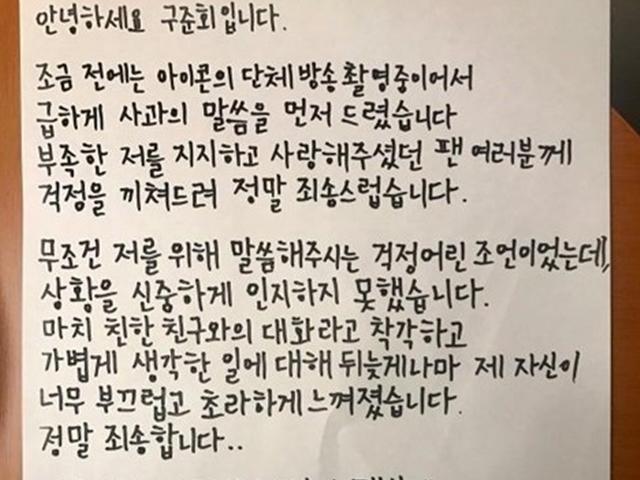 안녕하세요 구준회입니다.
조금 전에는 아이콘의 단체 방송 촬영중이어서
급하게 사과의 말씀을 먼저 드렸습니다
부족한 저를 지지하고 사랑해주셨던 팬 여러분께
걱정을 끼쳐드려 정말 죄송스럽습니다.
무조건 저를 위해 말씀해주시는 걱정어린 조언이었는데,
상황을 신중하게 인지하지 못했습니다.
마치 친한 친구와의 대화라고 착각하고
가볍게 생각한 일에 대해 뒤늦게나마 제 자신이
너무 부끄럽고 초라하게 느껴졌습니다.
정말 죄송합니다..